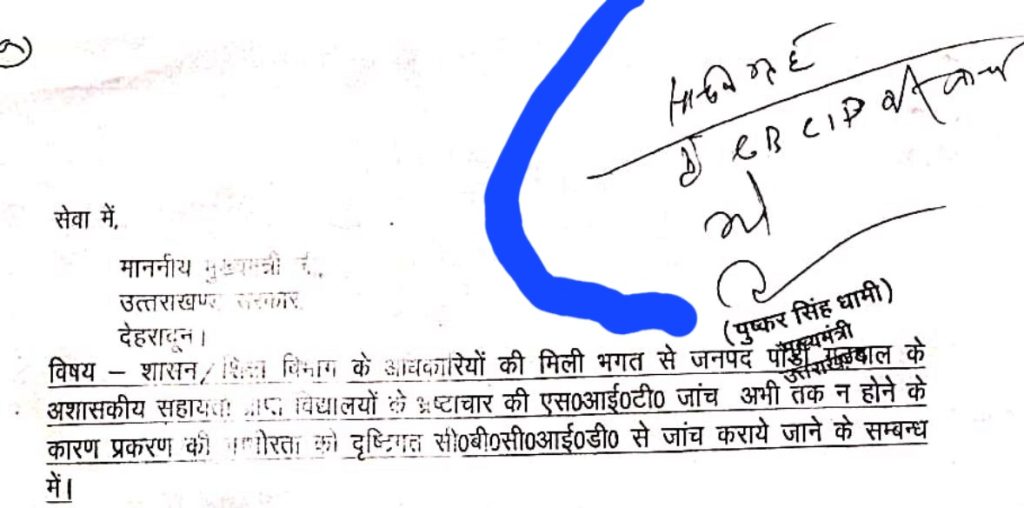 सेवा में,
माननीय मुख्यमन्त्री जी,
उत्तराखण्ड सरकार
देहरादून।
CBCID की जांच
(पुष्कर सिंह धामी)
मुख्यमंत्री
उत्तराखण्ड
विषय – शासन/शिक्षा विभाग के अधिकारियों की मिली भगत से जनपद पौड़ी गढ़वाल के
अशासकीय सहायता प्राप्त विद्यालयों के भ्रष्टाचार की एस0आई0टी0 जांच अभी तक न होने के
कारण प्रकरण की गम्भीरता को दृष्टिगत सी0बी0सी0आई0डी0 से जांच कराये जाने के सम्बन्ध
में।